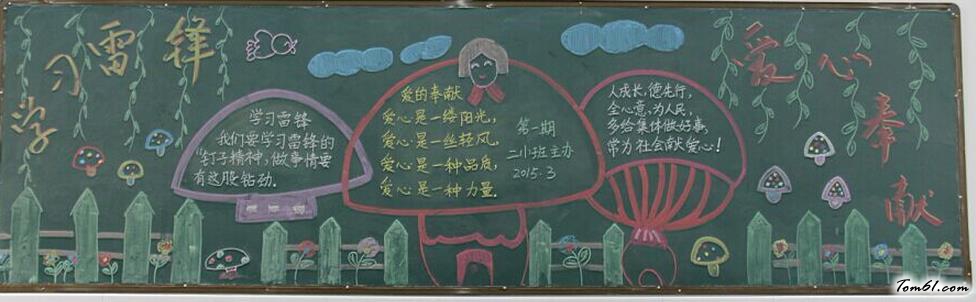 学习雷锋
学习雷锋
我们要学习雷锋的
“钉子精神，做事情要
有这股钻劲.
爱的奉献
爱心是一缕阳光，
爱心是一丝轻风，
爱心是一种品质，
爱心是一种力量.
第一期
二小班主办
2015.3
人成长，德先行，
全心意，为人民，
多给集体做好事，
常为社会献爱心！
爱心奉献
Tom61.com